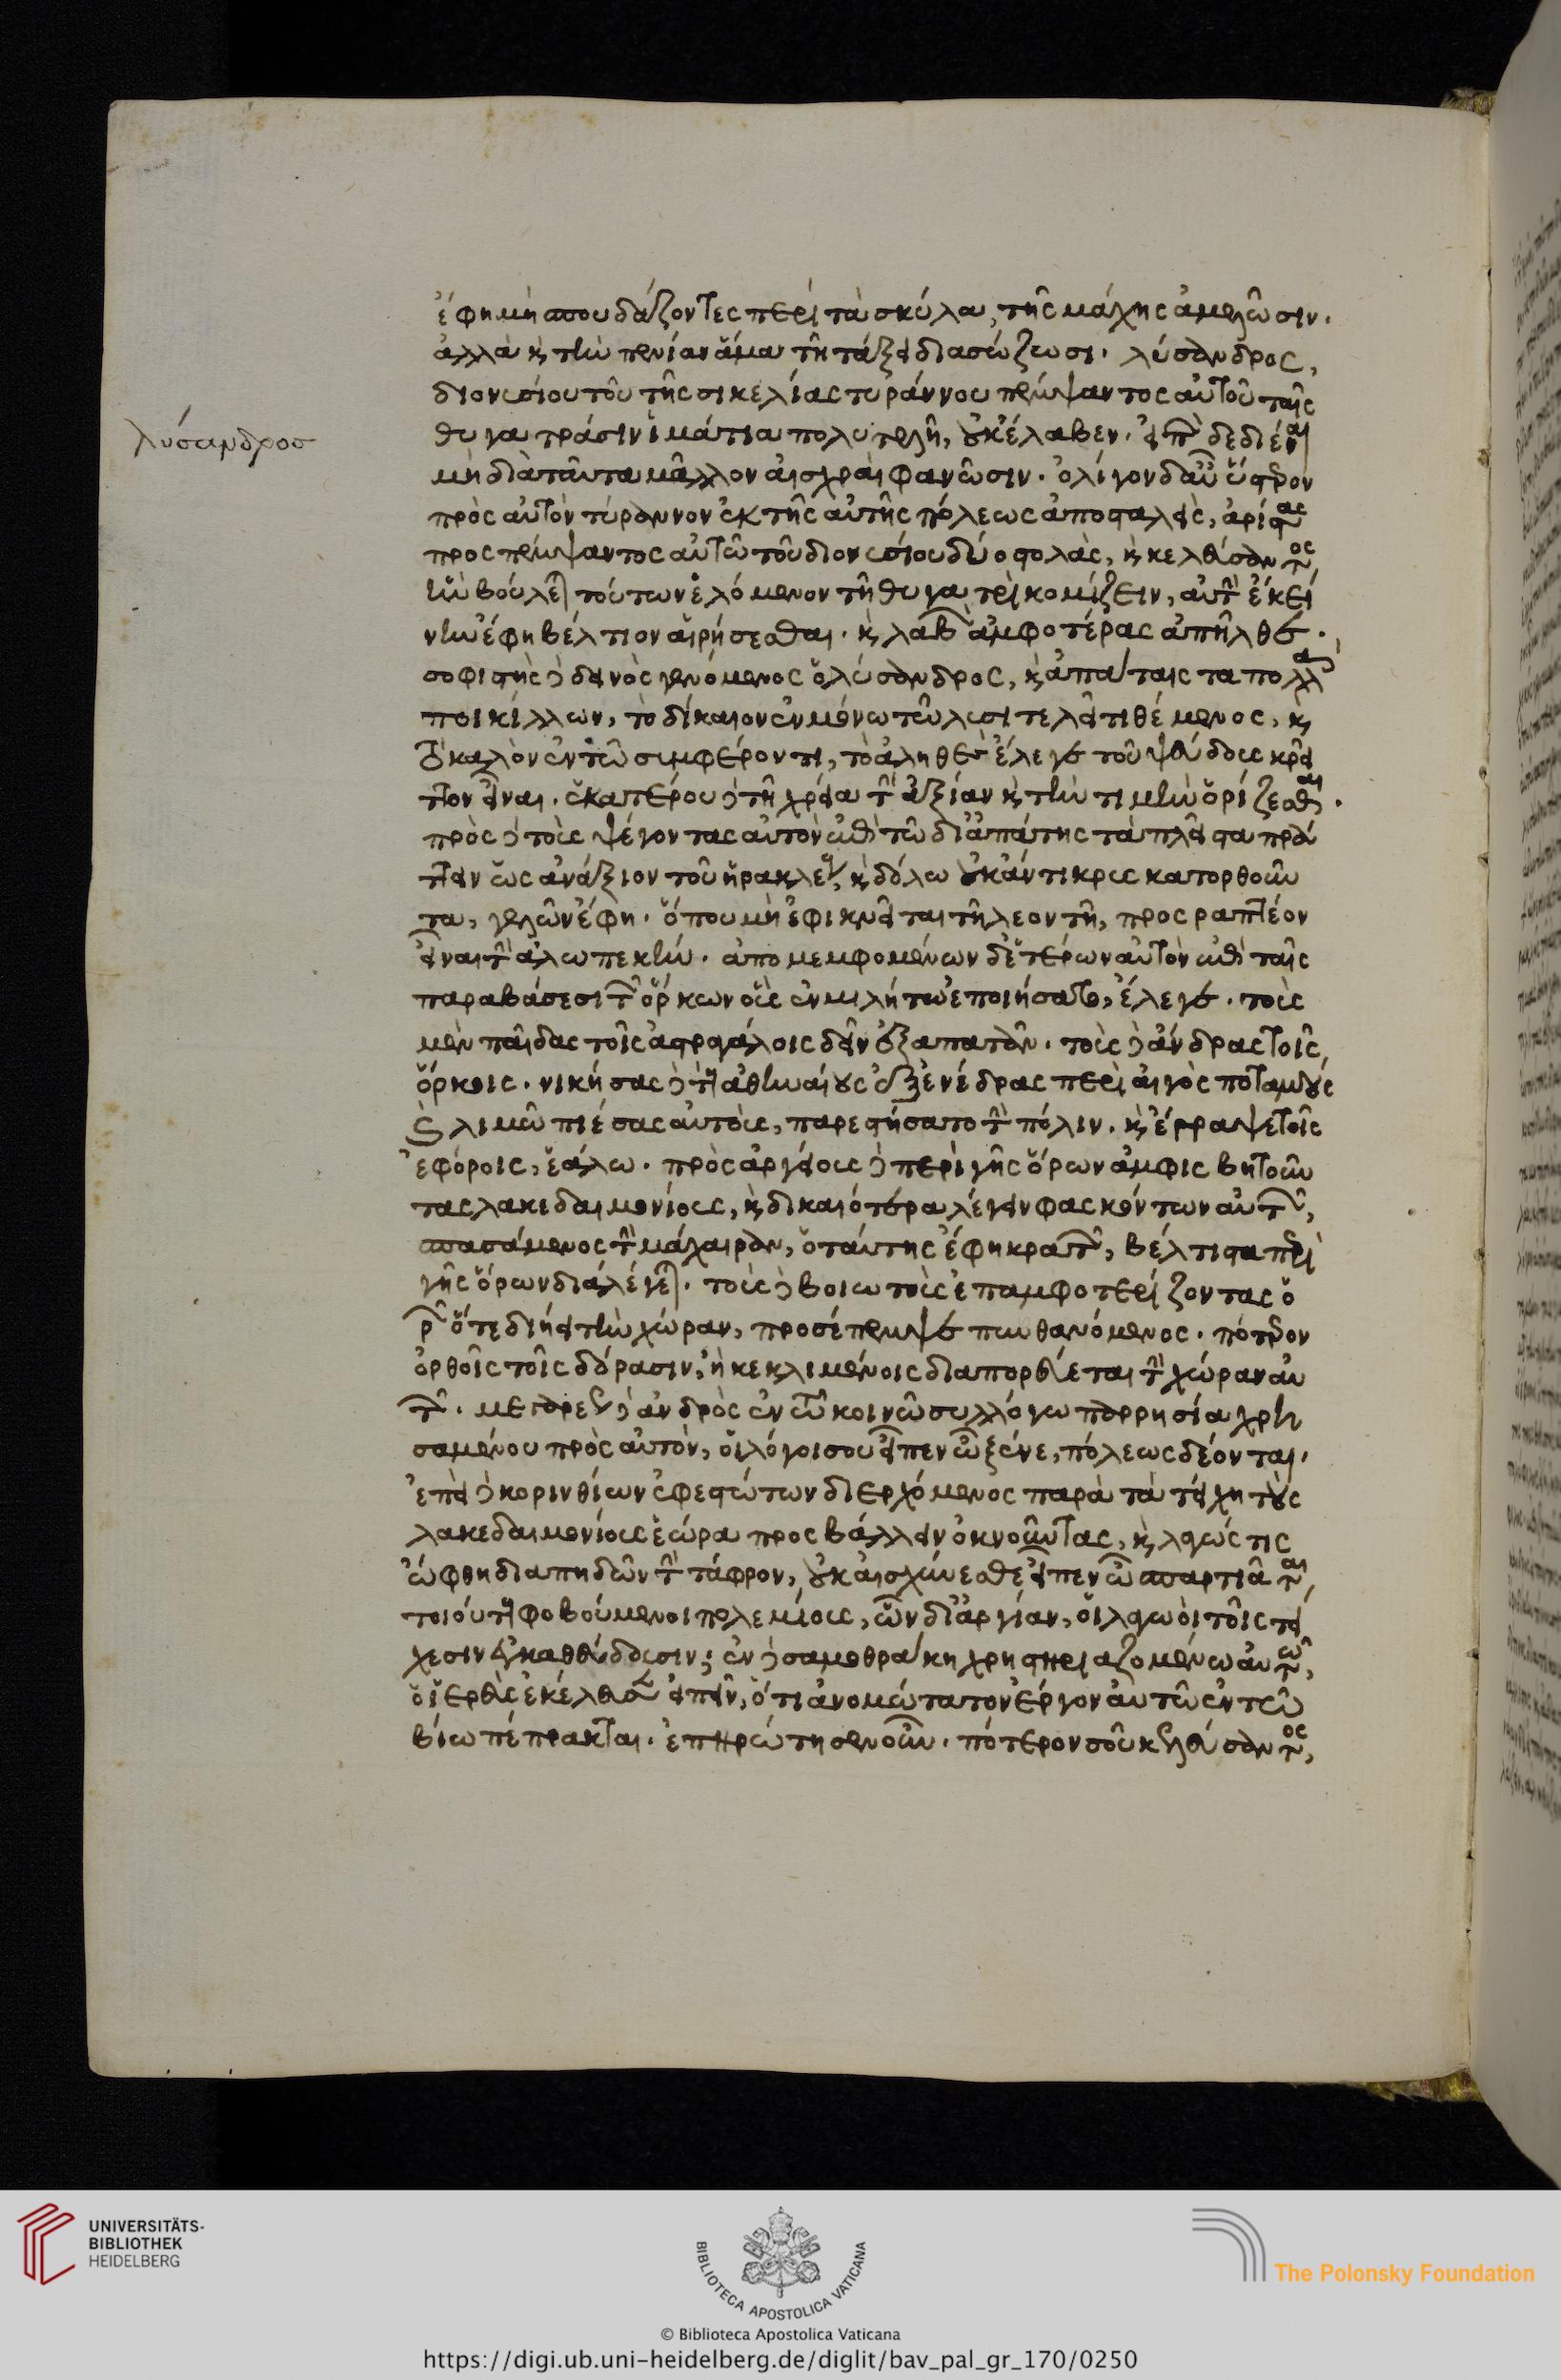 ἔφη μὴ σπουδάζοντες περὶ τὰ σκύλα, τῆς μάχης ἀμελῶσιν.
ἀλλὰ κ̀ τὴν πενίαν ἅμα τῆ τάξει διασώζωσι. λύσανδρος,
διονυσίου τοῦ τῆς σικελίας τυράννου πέμψαντος αὐτοῦ ταῖς
λύσανδρος
θυγατράσιν ἱμάτια πολυτελῆ, οὐκ ἔλαβεν. εἰπὼν δεδιέναι
μὴ διὰ ταῦτα μᾶλλον αἰσχραὶ φανῶσιν. ὀλίγον δ' αὖ ὕστερον
πρὸς αὐτὸν τύραννον ἐκ τῆς αὐτῆς πόλεως ἀποσταλεὶς,
προςπέμψαντος αὐτῶ τοῦ διονυσίου δύο στολὰς, κ̀ κελεύσαντος
ἣν βούλεται τούτων ἑλόμενον τῆ θυγατρὶ κομίζειν, αὐτὴν ἐκεί
νην ἔφη βέλτιον αἱρήσεσθαι. κ̀ λαβὼν ἀμφοτέρας ἀπῆλθεν.
σοφιστὴς δὲ δεινὸς γενόμενος ὁ λύσανδρος, κ̀ ἀπάταις τα πολλὰ
ποικίλλων, τὸ δίκαιον ἐν μόνω τῶ λυσιτελεῖ τιθέμενος, κ̀
τὸ καλὸν ἐν τῶ συμφέροντι, τὸ ἀληθὲς ἔλεγεν τοῦ ψεύδους κρεῖ
ττον εἶναι. ἑκατέρου δὲ τῆ χρεία τὴν ἀξίαν κ̀ τὴν τιμὴν ὁρίζεσθαι.
πρὸς δὲ τοὺς ψέγοντας αὐτὸν ἐπὶ τῶ δι' ἀπάτης τὰ πλεῖστα πρά
ττειν ὡς ἀνάξιον τοῦ ἡρακλέους, κ̀ δόλω οὐκ ἄντικρυς κατορθοῦν
τα, γελῶν ἔφη. ὅπου μὴ ἐφικνεῖται τῆ λεοντῆ, προςραπτέον
εἶναι τὴν ἀλωπεκήν. ἀπομεμφομένων δ' ἑτέρων αὐτὸν ἐπὶ ταῖς
παραβάσεσι τῶν ὅρκων οὓς ἐν μιλήτω ἐποιήσατο, ἔλεγεν. τοὺς
μὲν παῖδας τοῖς ἀστραγάλοις δεῖν ἐξαπατᾶν. τοὺς δὲ ἄνδρας τοῖς
ὅρκοις. νικήσας δὲ τοὺς ἀθηναίους ἐξ ἐνέδρας περὶ αἰγὸς ποταμοὺς
κ̀ λιμῶ πιέσας αὐτοὺς, παρεστήσατο τὴν πόλιν. κ̀ ἔγραψε τοῖς
ἐφόροις, ἑάλω. πρὸς ἀργείους δὲ περὶ γῆς ὅρων ἀμφισβητοῦν
τας λακεδαιμονίοις, κ̀ δικαιότερα λέγειν φασκόντων αὐτῶν,
σπασάμενος τὴν μάχαιραν, ὁ ταύτης ἔφη κρατῶν, βέλτιστα περὶ
γῆς ὅρων διαλέγεται. τοὺς δὲ βοιωτοὺς ἐπαμφοτερίζοντας ὁ
ρῶν ὅτε διήει τὴν χώραν, προσέπεμψεν πυνθανόμενος. πότερον
ὀρθοῖς τοῖς δόρασιν, ἢ κεκλιμένοις διαπορεύεται τὴν χώραν αὐ
τῶν. μεγαρέως δὲ ἀνδρὸς ἐν τῶ κοινῶ συλλόγω παρρησία χρη
σαμένου πρὸς αὐτὸν, οἱ λόγοι σου εἶπεν ὦ ξένε, πόλεως δέονται.
ἐπεὶ δὲ κορινθίων ἀφεστώτων διερχόμενος παρὰ τὰ τείχη τοὺς
λακεδαιμονίους ἑώρα προςβάλλειν ὀκνοῦντας, κ̀ λαγώς τις
ὤφθη διαπηδῶν τὴν τάφρον, οὐκ αἰσχύνεσθε εἶπεν ὦ σπαρτιᾶται
τοιούτους φοβούμενοι πολεμίους, ὧν δι' ἀργίαν, οἱ λαγωοὶ τοῖς τεί
χεσιν ἐγκαθεύδουσιν; ἐν δὲ σαμοθράκη χρηστηριαζομένω αὐτῶ,
ὁ ἱερεὺς ἐκέλευεν εἰπεῖν, ὅτι ἀνομώτατον ἔργον αὐτῶ ἐν τῶ
βίω πέπρακται. ἐπηρώτησεν οὖν. πότερον σοῦ κελεύσαντος,
UNIVERSITÄTS-
BIBLIOTHEK
HEIDELBERG
BIBLIOTECA APOSTOLICA VATICANA
The Polonsky Foundation
© Biblioteca Apostolica Vaticana
https://digi.ub.uni-heidelberg.de/diglit/bav_pal_gr_170/0250